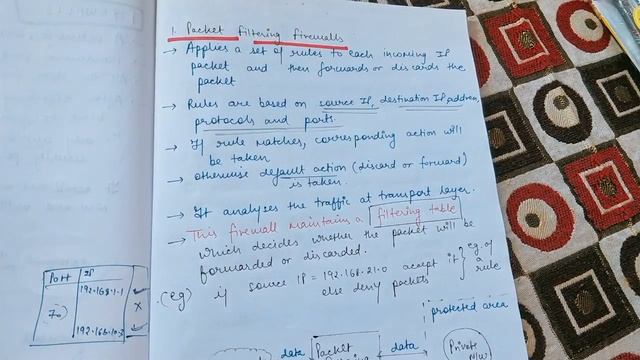 1. Packet Filtering Firewalls
→ Applies a set of rules to each incoming IP
packet and then forwards or discards the
packet
→ Rules are based on source IP, destination IP address,
protocols and ports.
→ If rule matches, corresponding action will
be taken
→ Otherwise default action (discard or forward)
is taken.
→ It analyses the traffic at transport layer.
→ This firewall maintains a filtering table
which decides whether the packet will be
forwarded or discarded.
(eg) if source IP = 192.168.21.0 accept it
else deny packets
eg. of
a
rule
Port IP
192.168.1.1
70
x
protected area
data
Packet
data
Private
N/W